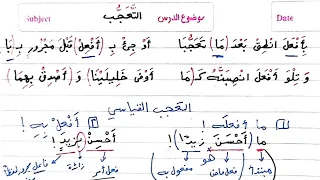 Subject موضوع الدرس التَّعَجُّب Date
بِأَفْعَلَ انْطِقْ بَعْدَ (مَا) تَعَجُّبَا أَوْ جِئْ بِـ(أَفْعِلْ) قَبْلَ مَجْرُورٍ بِـ(بَا)
وَتِلْوَ أَفْعَلَ انْصِبَنَّهُ كَـ(مَا أَوْفَى خَلِيلَيْنَا) وَ(أَصْدِقْ بِهِمَا)
التعجب القياسي
1 ما أَفْعَلَه! 2 أَفْعِلْ بِهِ!
ما (أَحْسَنَ زيدًا)! أَحْسِنْ بِزَيدٍ!
هو
مبتدأ فعل ماض مفعول به فعل أمر زائدة فاعل مجرور لفظًا